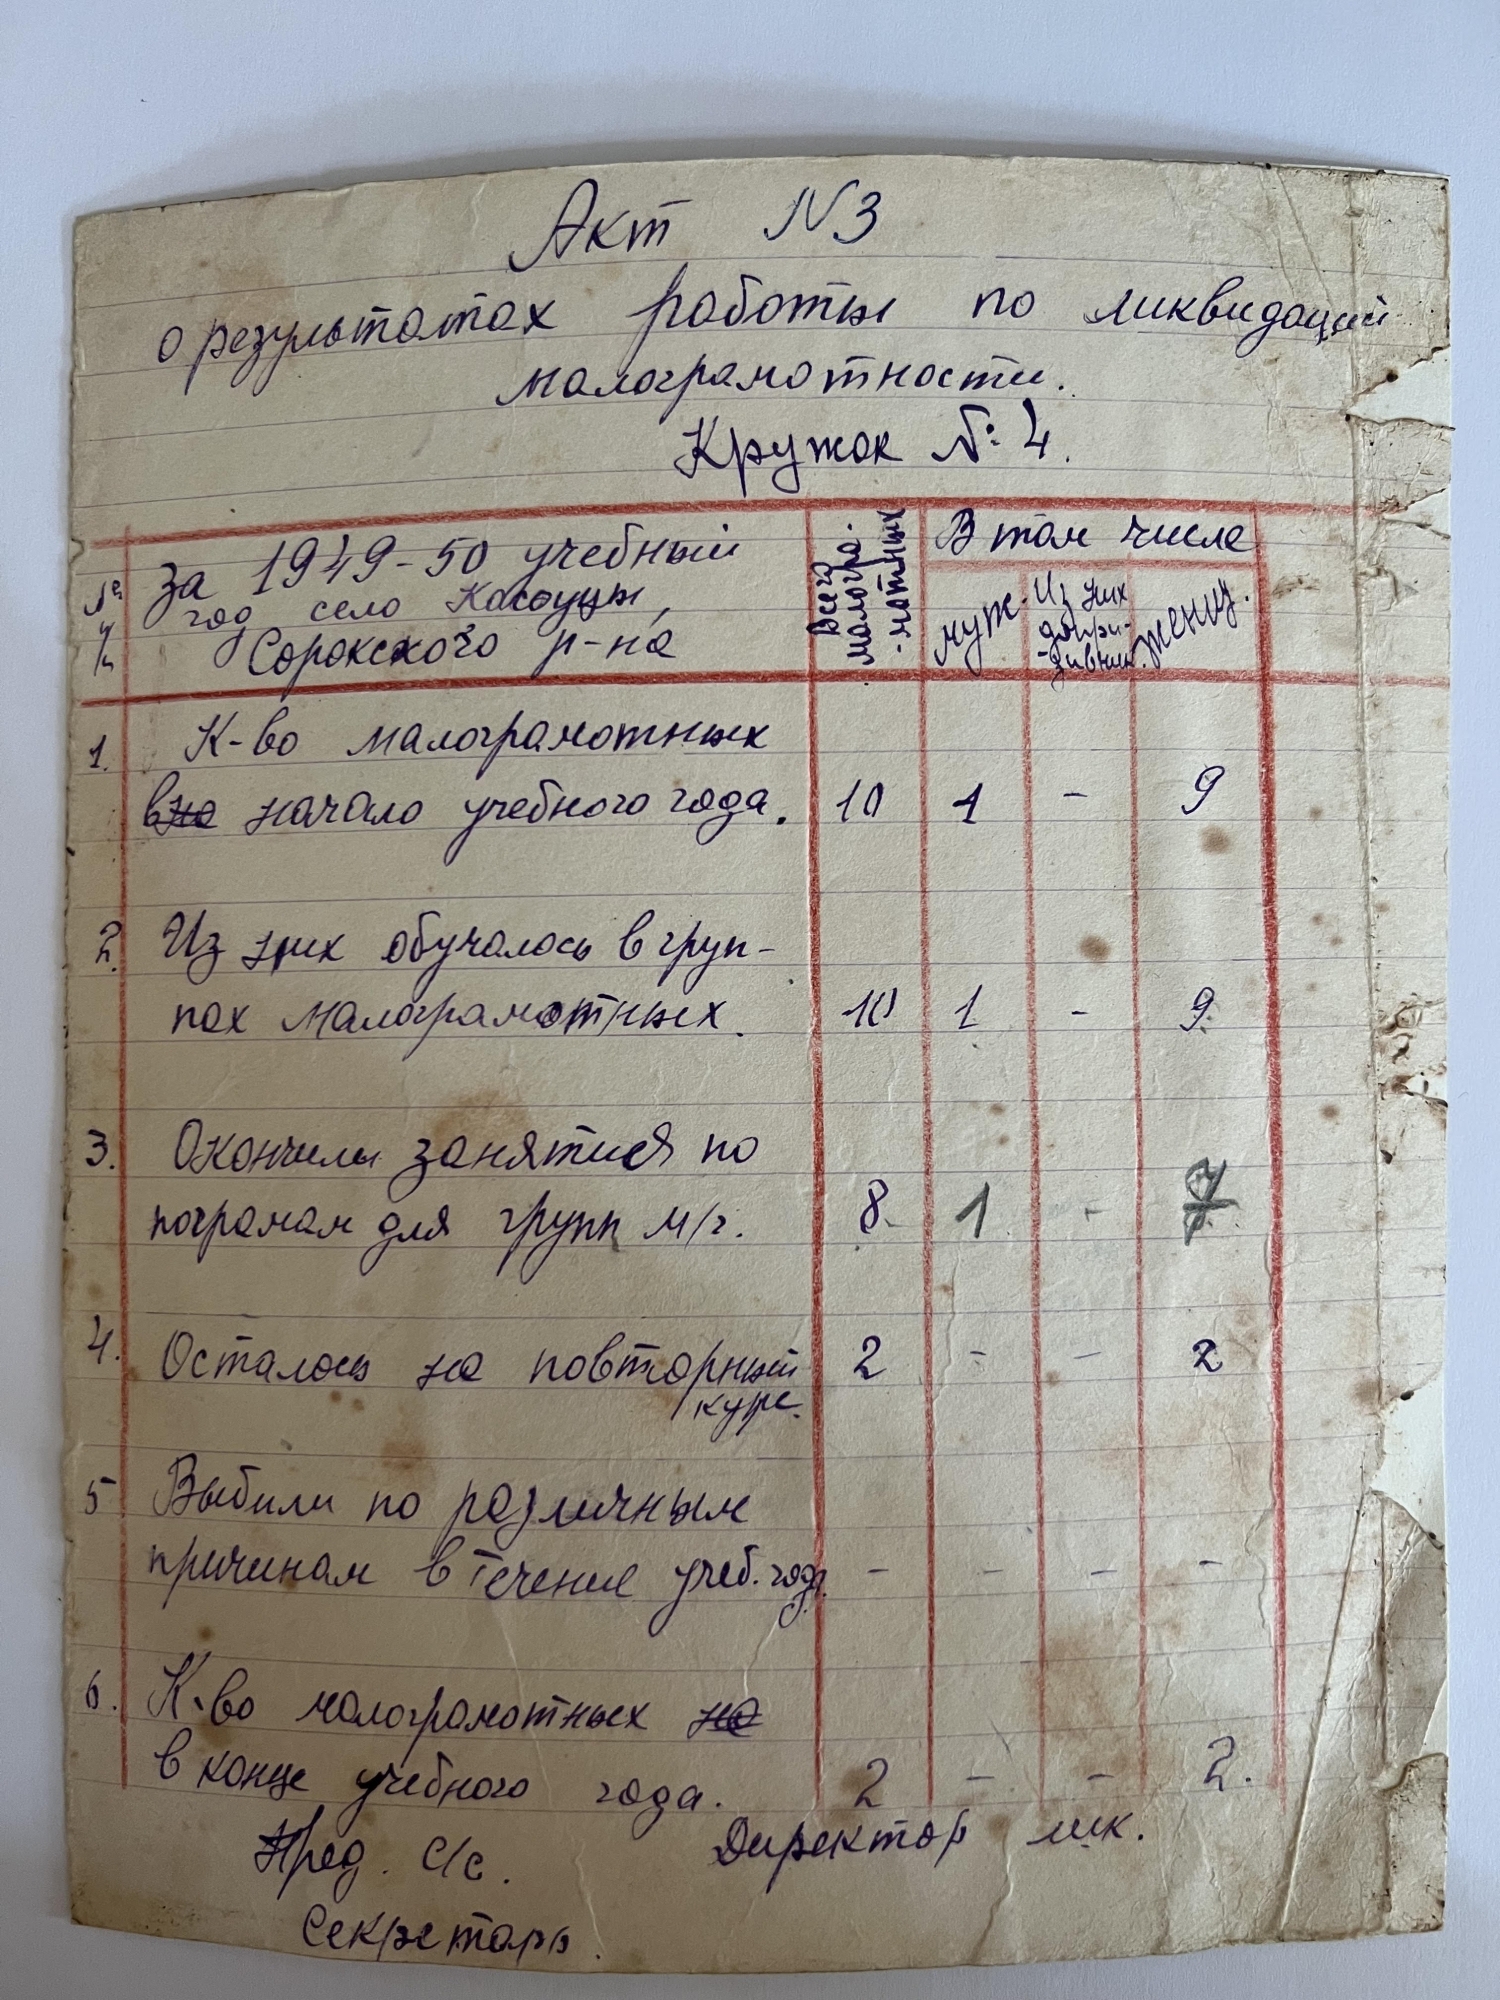 Акт N 3
о результатах работы по ликвидаций
малограмотности.
Кружок №: 4.
№ п/п
За 1949-50 учебный
год село Косоуцы,
Сорокского р-на
Всего малогра-
-мотных
В том числе
муж.
Из них
допри-
-зывник.
женщ.
1. К-во малограмотных
в на начало учебного года. 10 1 - 9
2. Из них обучалось в груп-
пах малограмотных. 10 1 - 9.
3. Окончили занятия по
пограмам для групп м/г. 8. 1 - 7
4. Осталось на повторный 2 - - 2
курс.
5 Выбили по различным
причинам в течение учеб. года. - - - -
6. К-во малограмотных на
в конце учебного года. 2 - - 2.
Пред. С/с. Директор шк.
Секретарь.